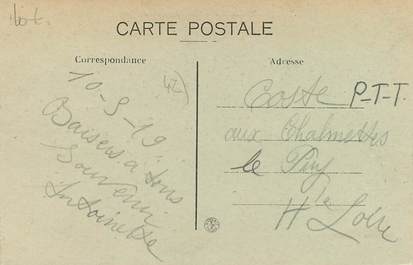 CARTE POSTALE
Correspondance
10-9-19
Baisers à tous
Souvenir
Antoinette
42
Adresse
Coste P-T-T
aux Chalmettes
le Puy
Hte Loire